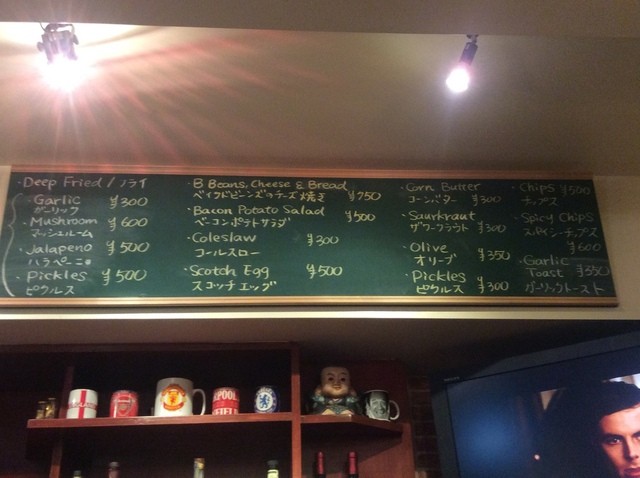 ・Deep Fried / フライ
・Garlic ¥300
ガーリック
・Mushroom ¥600
マッシュルーム
・Jalapeno ¥500
ハラペーニョ
・Pickles ¥500
ピクルス
・B Beans, Cheese & Bread
ベイクドビーンズのチーズ焼き ¥750
・Bacon Potato Salad ¥500
ベーコンポテトサラダ
・Coleslaw ¥300
コールスロー
・Scotch Egg ¥500
スコッチエッグ
・Corn Butter
コーンバター ¥300
・Saurkraut
ザワークラウト ¥300
・Olive ¥350
オリーブ
・Pickles
ピクルス ¥300
・Chips ¥500
チップス
・Spicy Chips
スパイシーチップス
¥600
・Garlic
Toast ¥350
ガーリックトースト